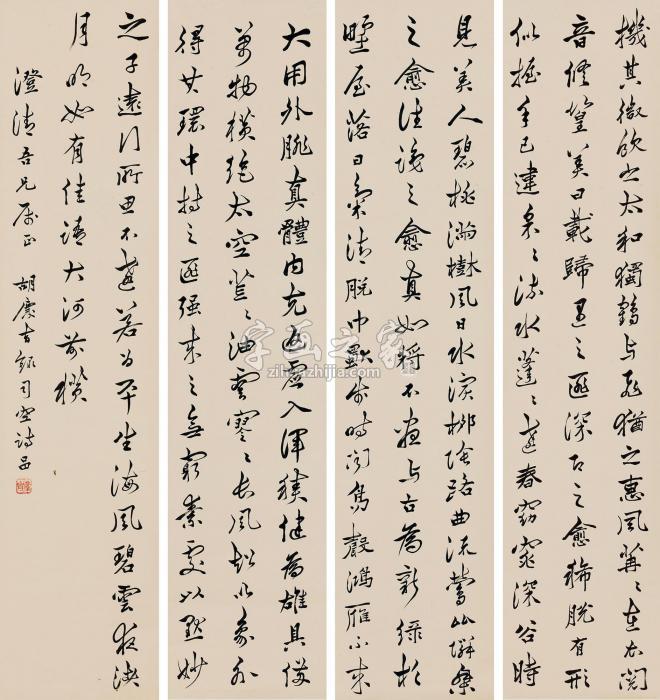 機其微飲之太和獨鶴与飛猶之惠風苒〻在衣閱
音修篁美曰載歸遇之匪深即之愈稀脫有形
似握手已違采〻流水蓬〻遠春窈窕深谷時
見美人碧桃滿樹風日水濱柳陰路曲流鶯比鄰乘
之愈往識之愈真如將不盡与古為新綠杉
野屋落日氣清脫巾獨步時聞鳥聲鴻雁不來
大用外腓真體內充返虛入渾積健為雄具備
萬物橫絕太空荒〻油雲寥〻長風超以象外
得其環中持之匪强來之無窮素處以默妙
之子遠行所思不遠若為平生海風碧雲夜渚
月明如有佳語大河前橫
澄清吾兄属正 胡吉録司空詩品
字画之家
zihuazhijia.com